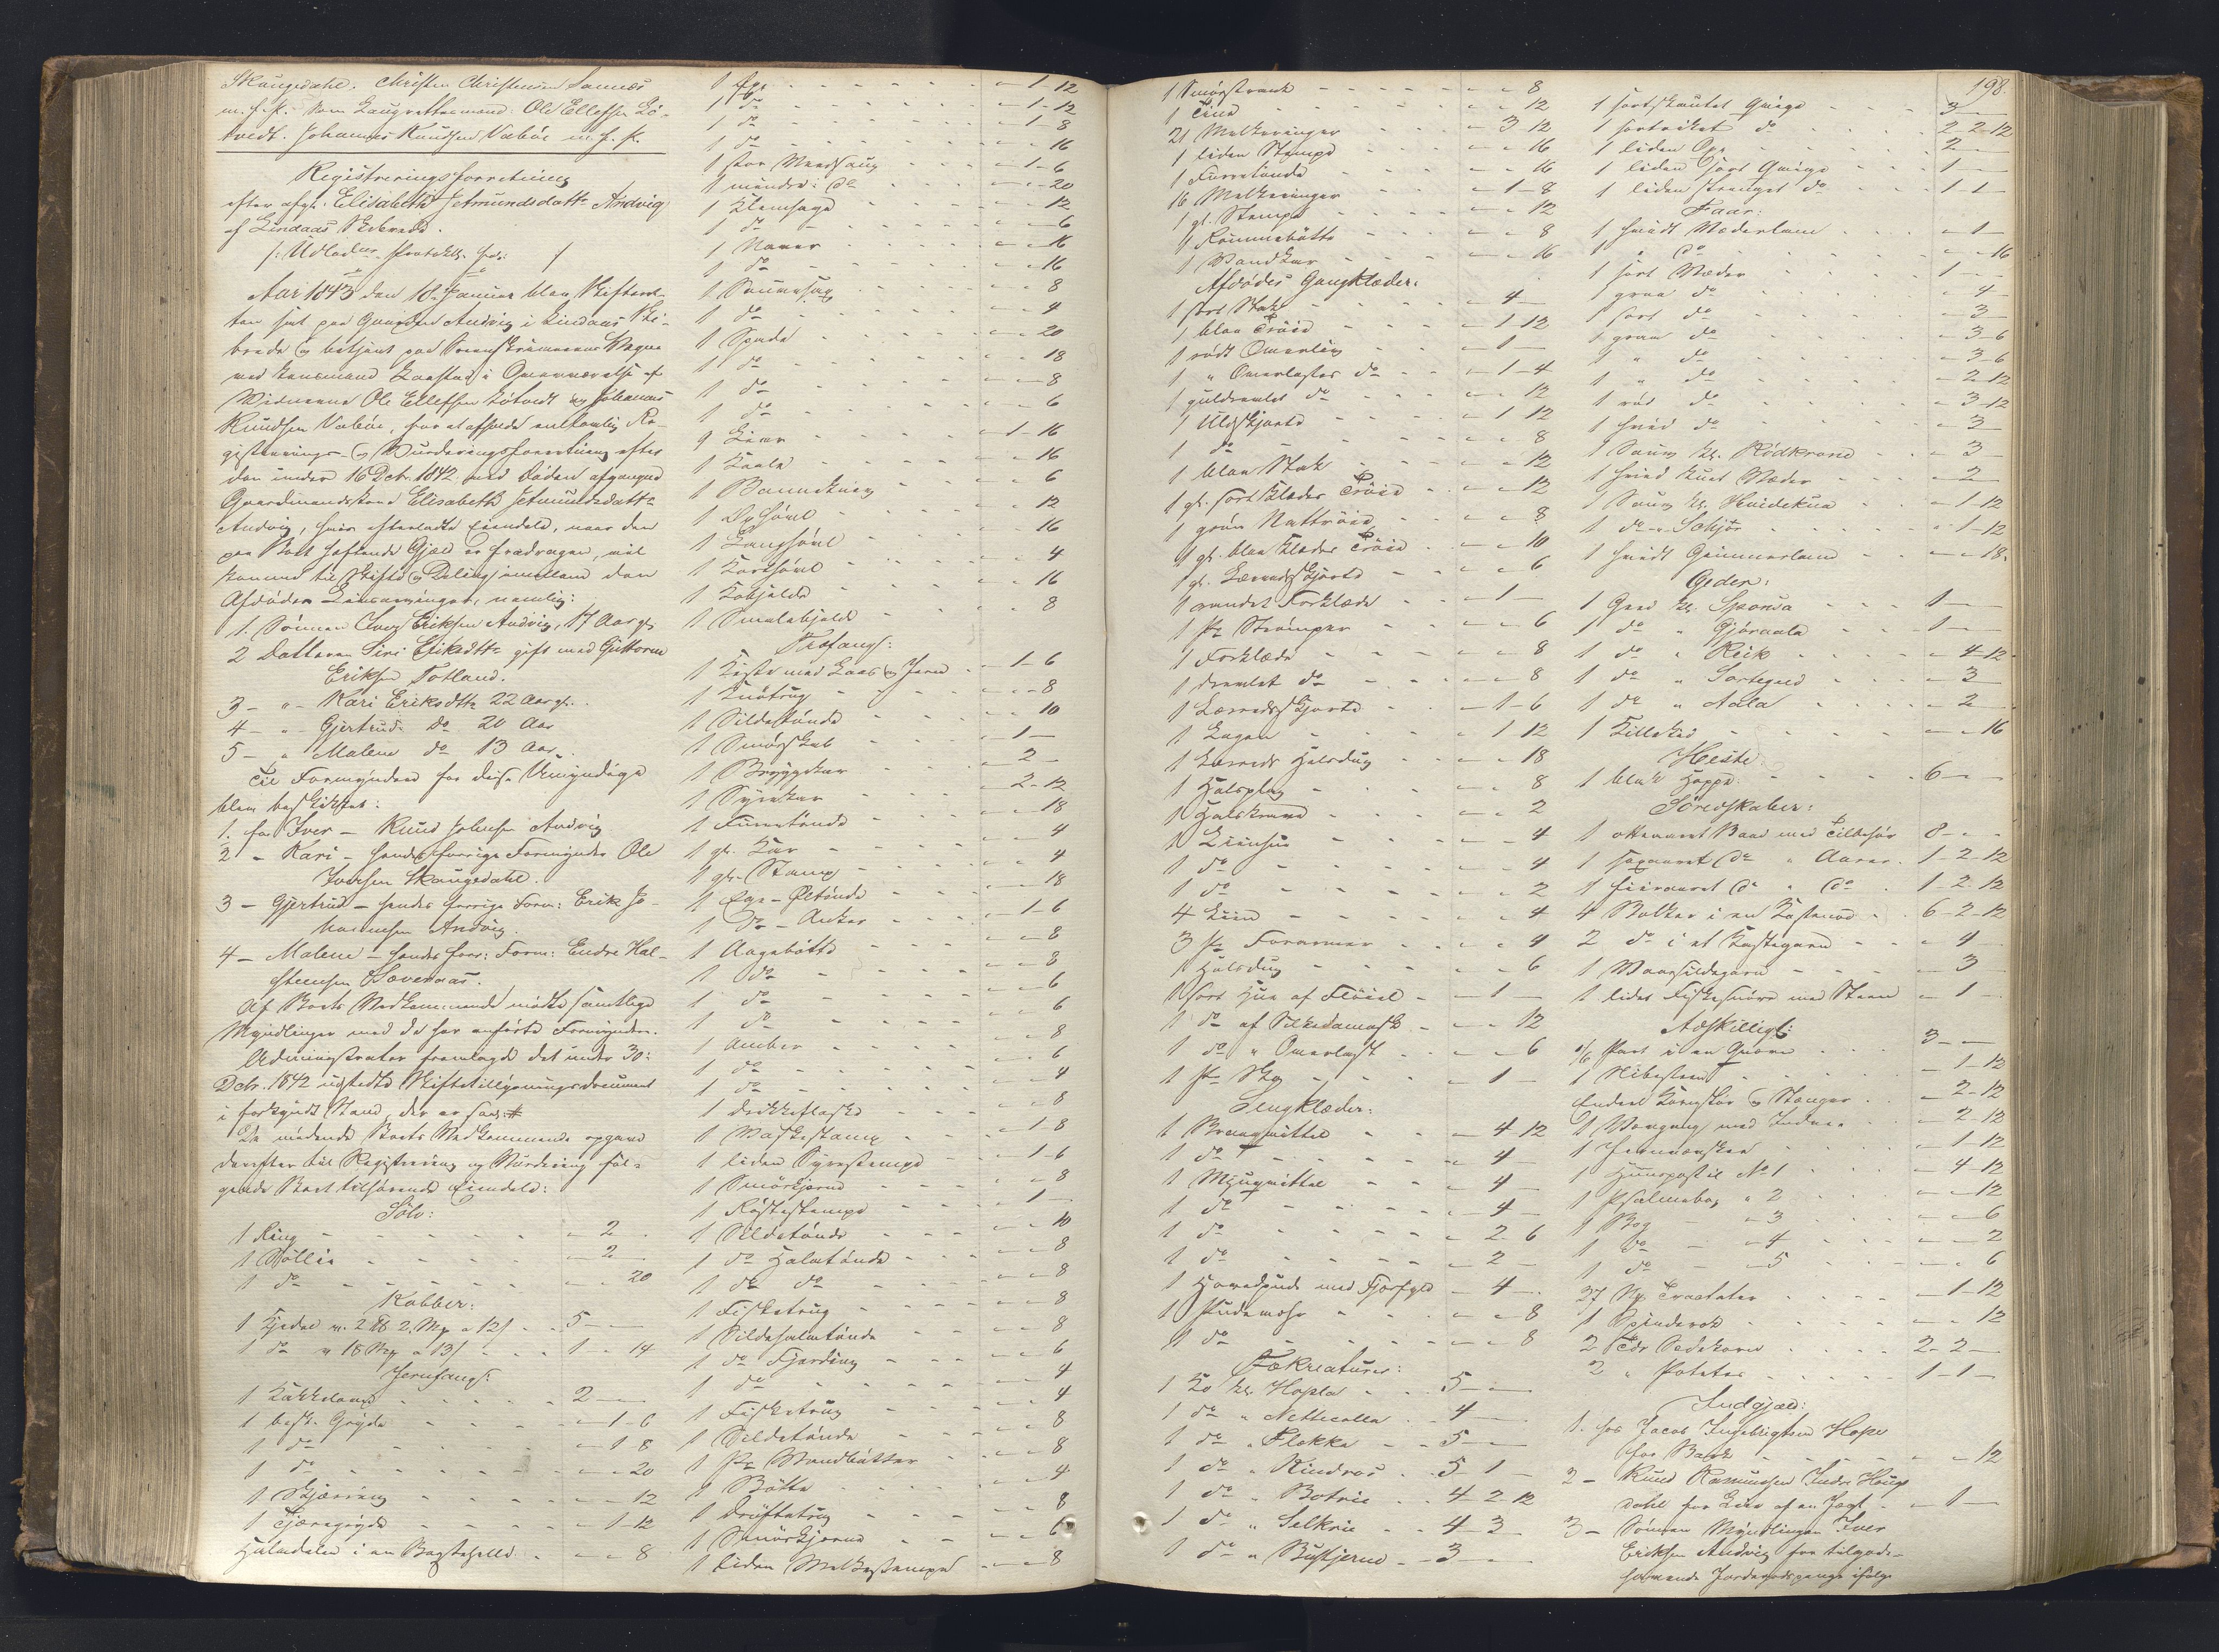 Skaugedahl. Christen Christensen Sannæs
m. f. P. Som Laugrettesmænd: Ole Ellefsen Lø-
tvedt. Johannes Knudsen Vabøe m. f. P.
Registreringsforretning
efter afgl. Elisabeth Jetmundsdattr Andvig
af Lindaas Skibrede.
Aar 1843 den 18 Januar blev Skifteret-
ten sat paa Gaarden Andvig i Lindaas Ski-
brede og betjent paa Sorenskriverens Vegne
ved Lensmand Kaastad i Overværelse af
Vidnerne Ole Ellefsen Løtvedt og Johannes
Knudsen Vabøe, for at afholde Re-
gistrerings- og Vurderingsforretning efter
den under 16 Dcbr. 1842 ved Døden afgangne
Gaardmandskone Elisabeth Jetmundsdattr
Andvig, hvis efterladte Eiendele, naar den
paa Boet heftende Gjæld er fradragen, vil
komme til Skifte og Deling imellem den
Afdødes Livsarvinger, nemlig:
1. Sønnen Iver Eriksen Andvig, 17 Aar gl.
2 Datteren Siri Eriksdttr gift med Guttorm
Eriksen Totland.
3 - " - Kari Eriksdttr 22 Aar gl.
4 - " - Gjertrud do 20 Aar
5 - " Malene do 13 Aar.
Til Formyndere for disse Umyndige
blev beskikket:
1. for Iver - Knud Johnsen Andvig
2 - Kari - hendes forrige Formynder Ole
Iversen Skaugedahl.
3 - Gjertrud - hendes forrige Form: Erik Jo-
hannesen Andvig.
4 - Malene - hendes forr: Form: Endre Hal-
steensen Sævernaas.
Af Boets Vedkommende mødte samtlige
Myndlinger med de her anførte Formyndere.
Administrator fremlagde det under 30:
Dcbr. 1842 udstedte Skiftetillysningsdocument
i forkyndt Stand, der er saal: #
De mødende Boets Vedkommende opgave
derefter til Registrering og Vurdering føl-
gende Boet tilhørende Eiendele:
Sølv:
1 Ring - 2 -
1 Søllie - 2 -
1 do - - 20
Kobber:
1 Kjedel v. 2 ℔ 2 Mp a 12/ 5 - -
1 do v 18 Mp a 13/ 1 - 14
Jernfang:
1 Kakkelovn 2 - -
1 besk. Gryde - 1 - 6
1 do - 1 8
1 do - - 20
1 Skjæring - - 12
1 Tjæregryde - 1 - 12
Halvdelen i en Bagstehelle - - 8
1 Øxe - 1 - 12
1 do - 1 - 12
1 do - 1 8
1 do - - 16
1 stor - 1 - 6
1 mindre do - - 20
1 - - 12
1 do - - 6
1 Naver - - 16
1 do - - 16
1 - - 8
1 do - - 4
1 Spade - - 20
1 do - - 18
1 do - - 8
1 do - - 6
9 Liaer - 1 - 16
1 - - 16
1 - - 6
1 - - 12
1 Langhøvl - - 16
1 - - 4
1 Kobjelde - - 16
1 Smalebjelde - - 8
Træfang:
1 Kiste med Laas og Jern - 1 - 6
1 - - 8
1 Sildetønde - - 10
1 Smørskab - 1 -
1 Bryggekar - 2 -
1 Syrekar - 2 - 12
1 Furretønde - - 18
1 gl. Kar - - 4
1 gl. Stamp - - 4
1 Ege-Øltønde - - 18
1 do - Anker - 1 - 6
1 - - 8
1 do - - 8
1 do - - 6
1 do - - 6
1 Ambar - - 8
1 do - - 6
1 do - - 4
1 Drikkeflaske - - 8
1 Vaskestamp - 1 - 8
1 liden Syrestampe - 1 - 6
1 Smørkjerne - - 8
1 - 1 -
1 Sildetønde - - 10
1 do Halvtønde - - 8
1 do do - - 8
1 Fisketrug - - 8
1 Sildehalvtønde - - 8
1 do Fjerding - - 6
1 do - - 4
1 Fisketrug - - 4
1 Sildetønde - - 8
1 Pr Vandbøtter - - 8
1 Bøtte - - 4
1 Drøftetrug - - 8
1 Smørkjerne - - 6
1 liden Melkestampe - - 8
1 - - 8
1 Tine - - 12
21 Melkeringer - 3 12
1 liden Stampe - - 16
1 Furretønde - - 16
16 Melkeringer - 1 - 8
1 gl. Stampe - - 12
1 Rømmebøtte - - 8
1 Vandkar - - 16
Afdødes Gangklæder:
1 sort Stak - 4 -
1 blaa Trøie - 1 12
1 rødt Overliv - 1 -
1 " do - 1 - 4
1 do - - 12
1 Uldskjorte - 1 12
1 do - - 8
1 blaa Stak - - 12
1 gl. sort Klædes Trøie - - 12
1 grøn Nattrøie - - 8
1 gl. blaa Klædes Trøie - - 10
1 gl. Lærredsskjorte - - 6
1 Forklæde - 1 -
1 Pr Strømper - - 6
1 Forklæde - - 8
1 do - - 8
1 Lærredsskjorte - 1 - 6
1 Lagen - 1 12
1 Lærreds Halsdug - - 18
1 Halsplag - - 8
1 - - 2
1 Liinhue - - 4
1 do - - 4
1 do - - 2
4 - - 4
3 Pr Forermer - - 4
1 Halsdug - - 6
1 sort Hue af Fløiel - 1 -
1 do af Silkedamask - - 12
1 do " - - 6
1 Pr Sko - 1 -
Sengklæder:
1 - 4 12
1 do - 4 -
1 - 4 -
1 do - 4 -
1 do - 2 6
1 do - 2 -
1 Hovedpude med Fjærfyld - 4 -
1 Pudevahr - - 8
1 do - - 8
Fækreature:
1 Ko kl. Hopla 5 - -
1 do " Netticolla 4 -
1 do " Flekka 5 - -
1 do " Rindros 5 - 1 -
1 do " Botrie 4 - 2 - 12
1 do " Silkrie 4 - 3 -
1 do " Bustjerne 3 -
198.
1 sortskautet Qvige 3 - -
1 do 2 - 2 - 12
1 liden Oxe 2 - -
1 liden sort Qvige - 1 -
1 liden do - 1 - 1 -
Faar:
1 hvidt Væderlam - 1 -
1 " do - - 16
1 sort Væder 1 - -
1 graa do - 4 -
1 sort do - 3 -
1 graa do - 3 - 6
1 " do - 3 - 6
1 " do - 2 - 12
1 rød do - 3 - 12
1 hvid do - 3 -
1 Sau kl. Rødkrone - 3 -
1 hvid Væder - 2 -
1 Sau kl. Hvidekua - 1 - 12
1 do - 1 - 12
1 hvidt Gimmerlam - - 18.
Geder:
1 Geed kl. Sponsa 1 - -
1 do " Gjøraala 1 - -
1 do " Reik - 4 - 12
1 do " Sortegeed - 3 -
1 do " Aala - 2 -
1 Killeked - - 16
Heste
1 blak Hoppe 6 - -
Søredskaber:
1 ottearet Baad med Tilbehør 8 - -
1 sexaaret do " Aarer 1 - 2 - 12
1 fiiraaret do " do 1 - 2 - 12
4 Bolker i en Kastenod 6 - 2 - 12
2 do i et Kastegarn - 4 -
1 Vaarsildegarn - 3 -
1 lidet Fiskesnøre med Steen - 1 -
Adskilligt:
1/6 Part i en Qværn 3 - -
1 Slibesteen - 1 - 12
Endeel og Stænger - 2 - 12
1 med - 2 - 12
1 - 1 - 12
1 Huuspostil No 1 - 4 - 12
1 Psalmebog " 2 - - 12
1 Bog - 3 - - 6
1 do - 4 - - 2
1 do - 5 - - 6
27 Stk. Tractater - 1 - 12
1 Spinderok - - 12
2 Tdr Sædekorn 2 - 2 -
2 " Poteter 1 - 1 -
Indgjæld:
1. hos Jacob Ingebrigtsen Hope
for - - 12
2 - Knud Rasmussen Indre Haug-
dahl for Leie af en Jagt - 1 -
3 - Sønnen Myndlingen Iver
Eriksen Andvig for tilgode-
havende Jordegodspenge ifølge